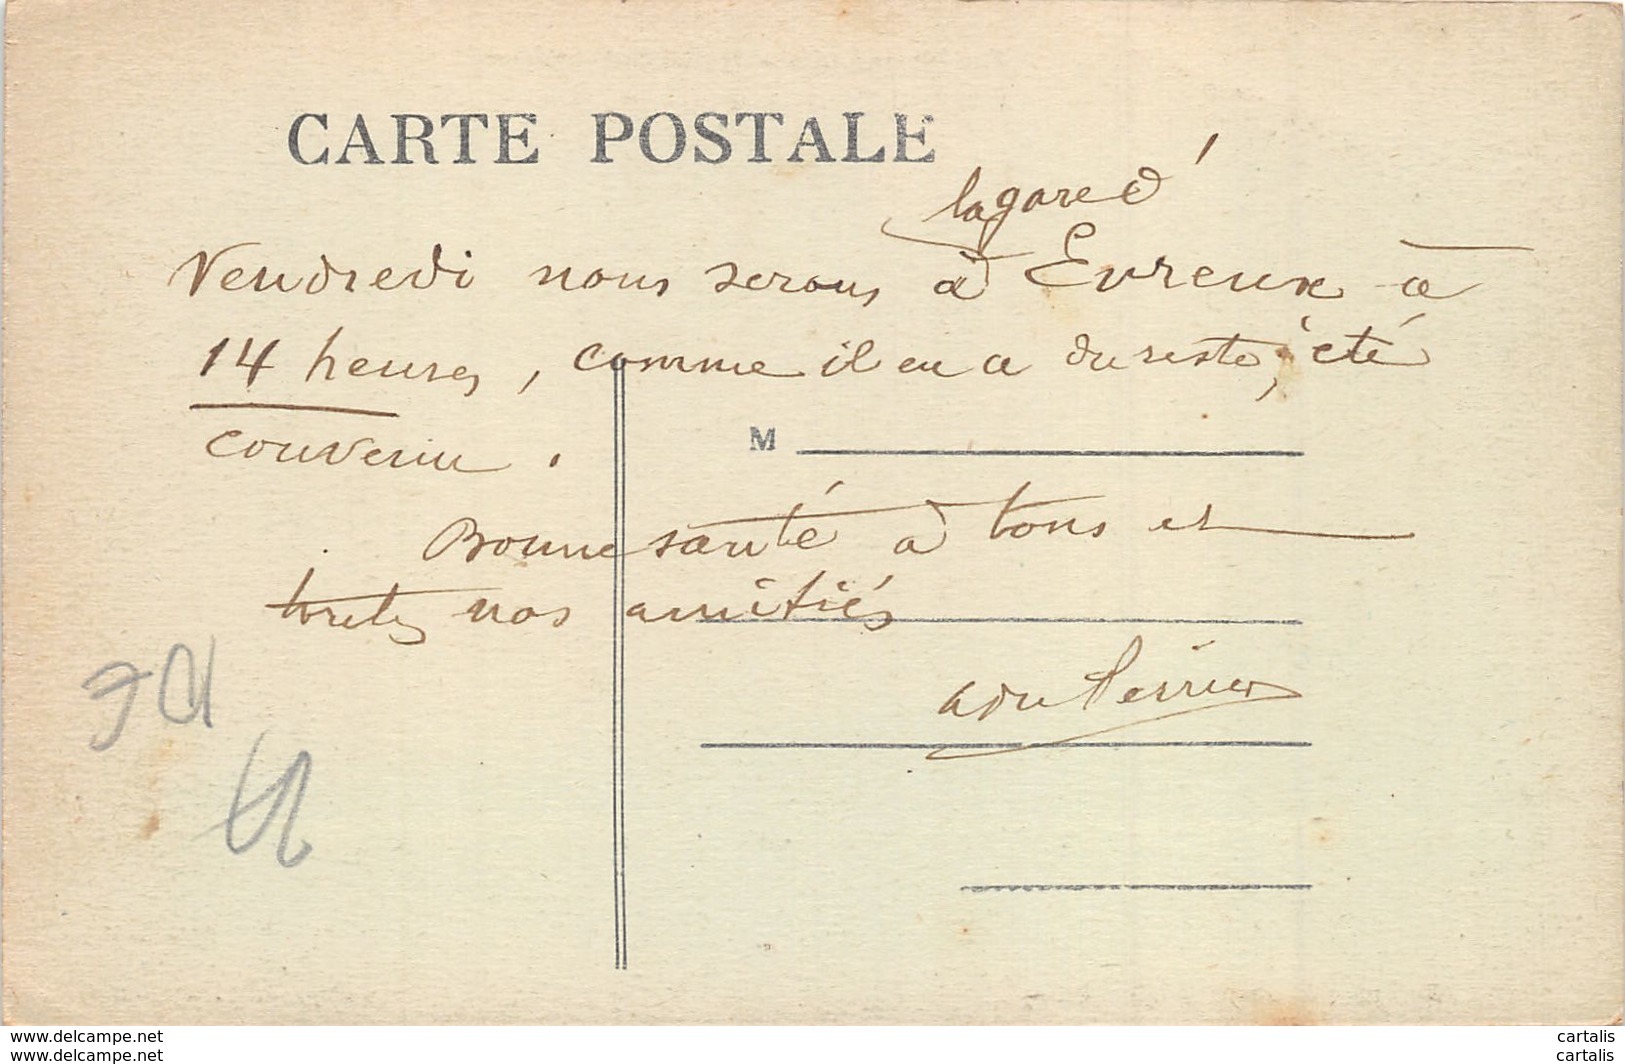 CARTE POSTALE
la gare d'
Vendredi nous serons à Evreux à
14 heures, comme il en a du reste, été
convenu.
M
Bonne santé à tous et
toutes nos amitiés
www.delcampe.net
cartalis
www.delcampe.net
cartalis